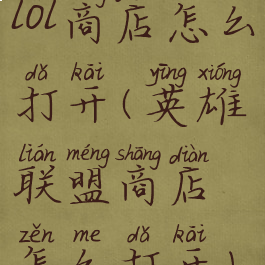 lol商店怎么
dǎ kāi yīng xióng
打开(英雄
lián méng shāng diàn
联盟商店
zěn me dǎ kāi
怎么打开)